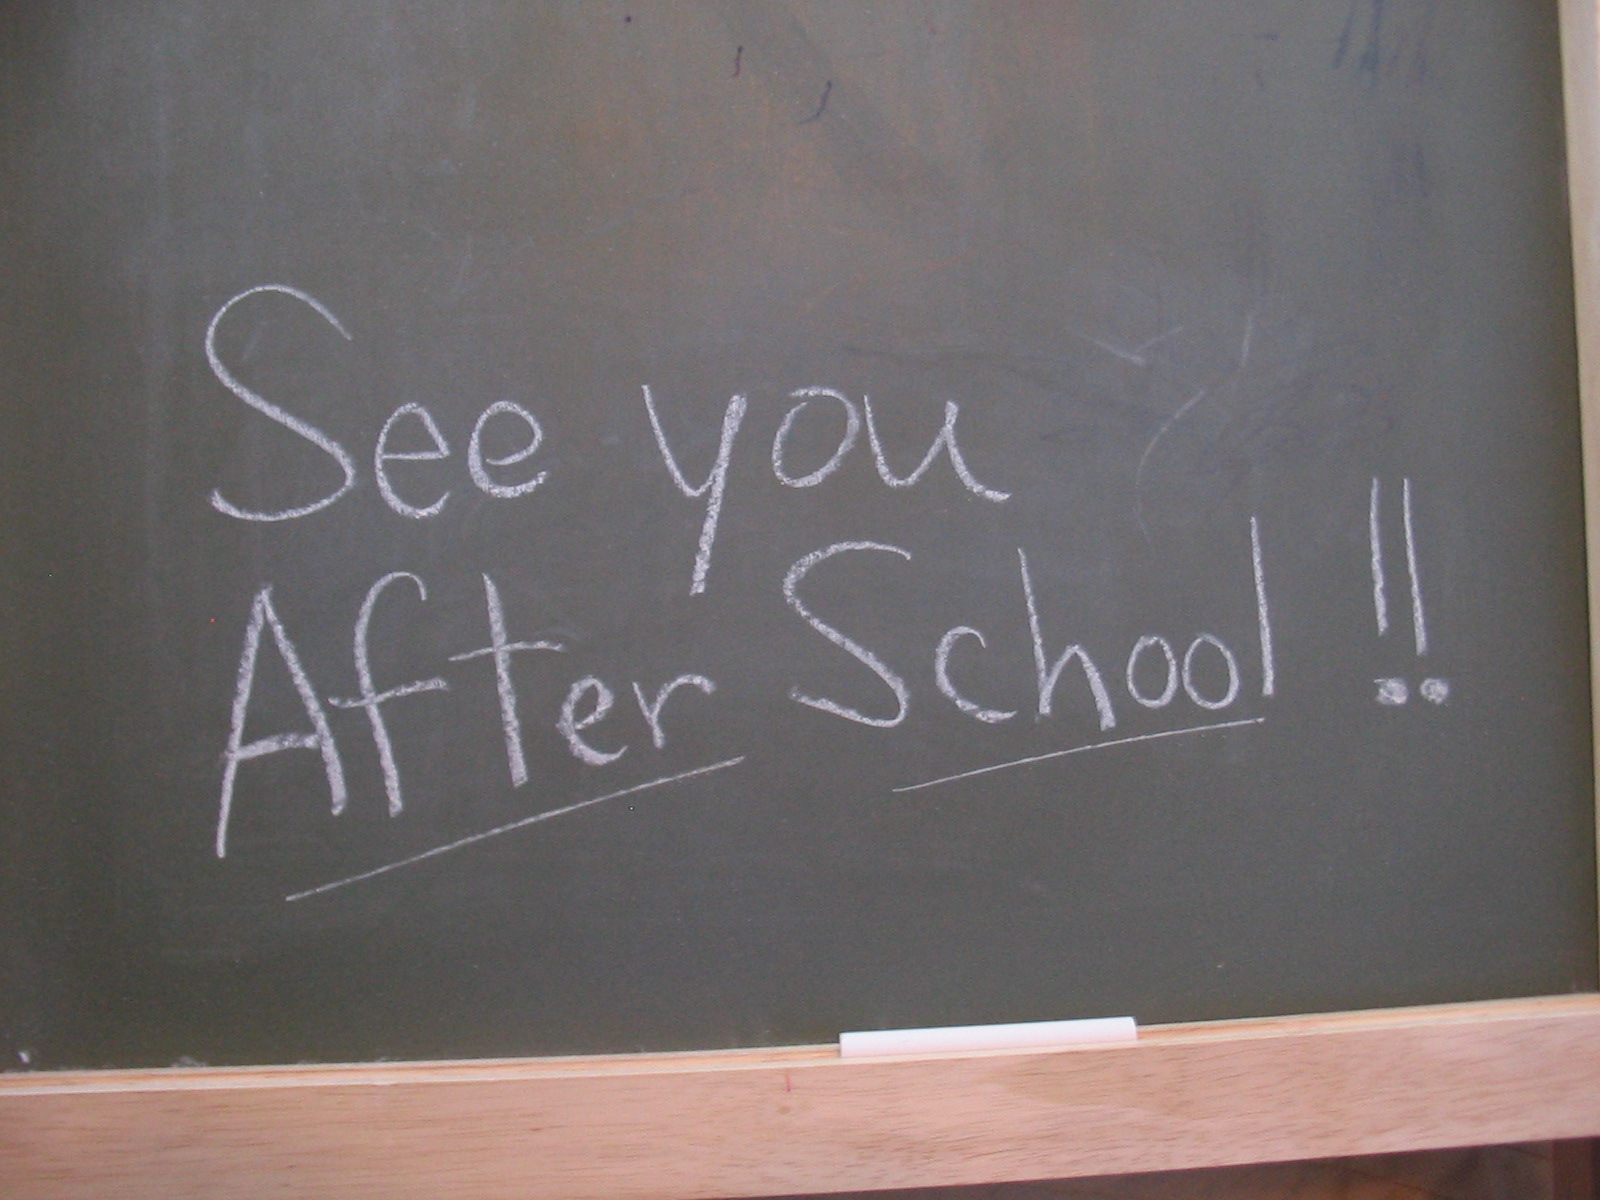 See you
After School !!